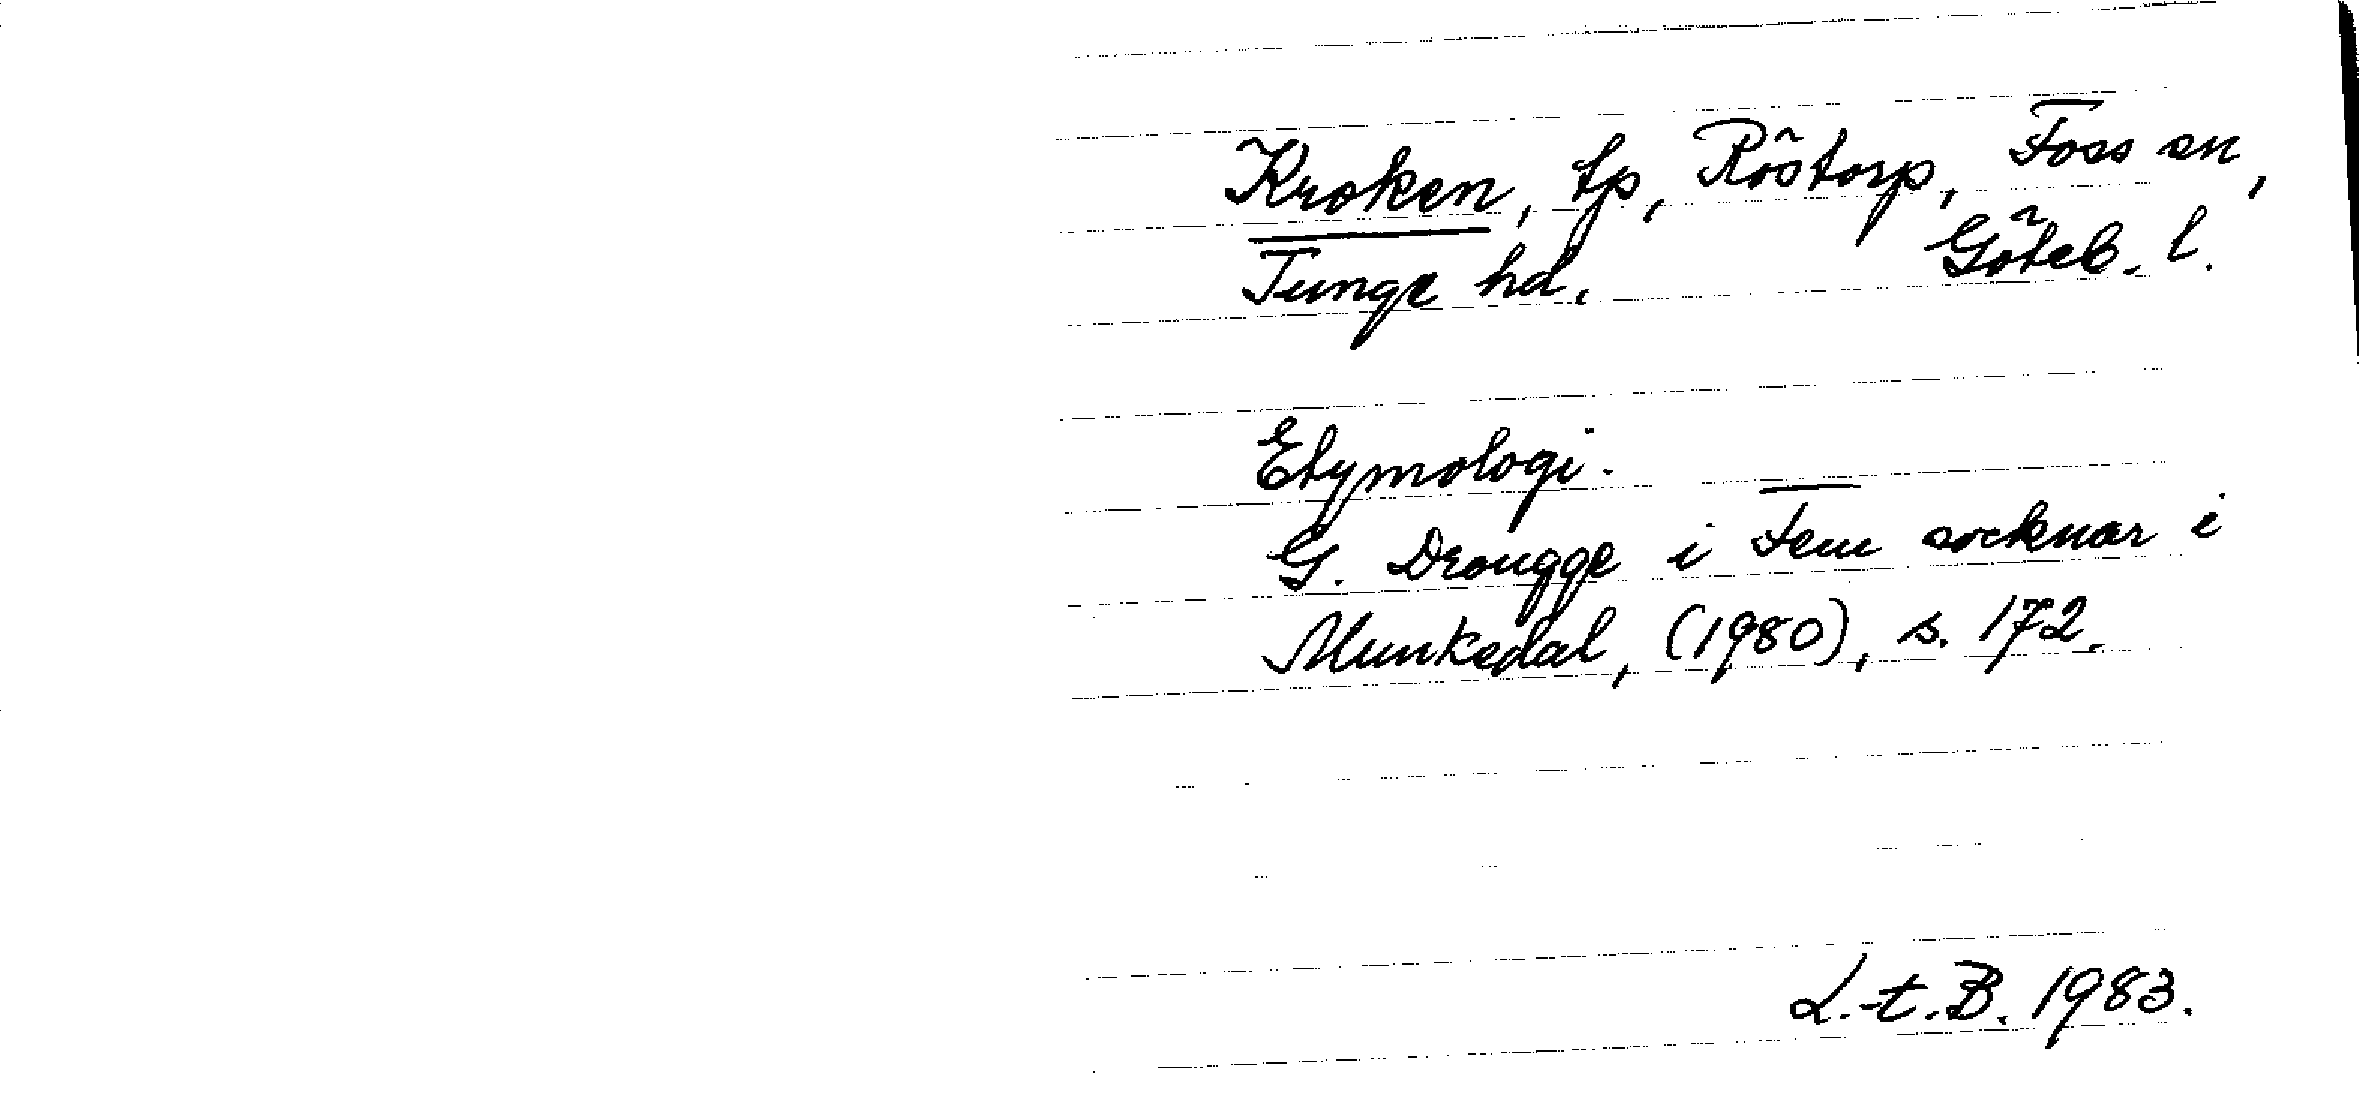 Kroken, tp, Röstorp, Foss sn,
Tunge hd. Göteb. l.
Etymologi.
G. Drougge i Fem socknar i
Munkedal, (1980), s. 172.
L.-t. B. 1983.